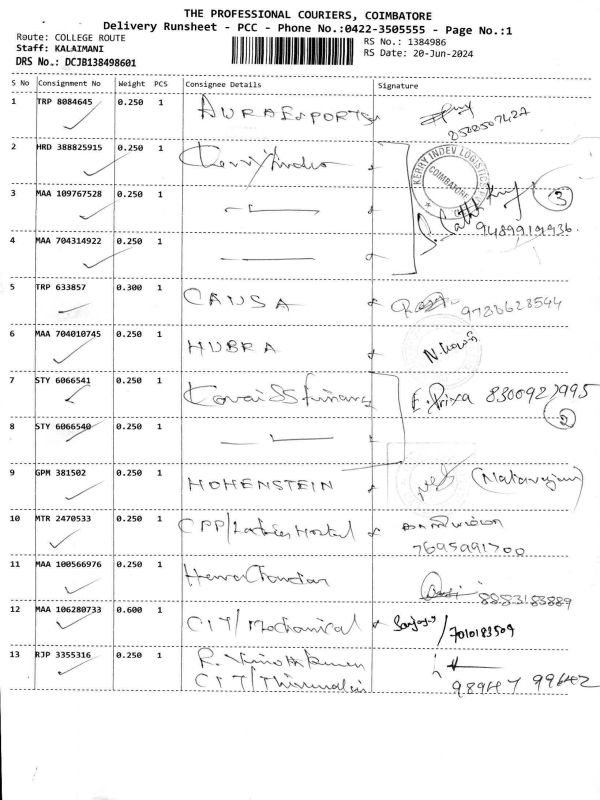 THE PROFESSIONAL COURIERS, COIMBATORE
Delivery Runsheet - PCC - Phone No.:0422-3505555 - Page No.:1
Route: COLLEGE ROUTE
RS No.: 1384986
Staff: KALAIMANI
RS Date: 20-Jun-2024
DRS No.: DCJB138498601
S No Consignment No Weight PCS Consignee Details Signature
1 TRP 8084645 0.250 1 AURA EXPORTS
2 HRD 388825915 0.250 1 Kerry Indev
KERRY INDEV LOGISTICS
COIMBATORE
3 MAA 109767528 0.250 1 3
9489919936
4 MAA 704314922 0.250 1
5 TRP 633857 0.300 1 CAUSA 9786628544
6 MAA 704010745 0.250 1 HUBRA
7 STY 6066541 0.250 1 Kovai SS finance E. Priya 8300927995
2
8 STY 6066540 0.250 1
9 GPM 381502 0.250 1 HOHENSTEIN (Natarajan)
10 MTR 2470533 0.250 1 CPP/Ladies Hostel
7695991700
11 MAA 100566976 0.250 1 8883183889
12 MAA 106280733 0.600 1 CIT/Mechanical 7010183509
13 RJP 3355316 0.250 1 R. Vinothkumar
CIT/Thirumalai 98947 99642